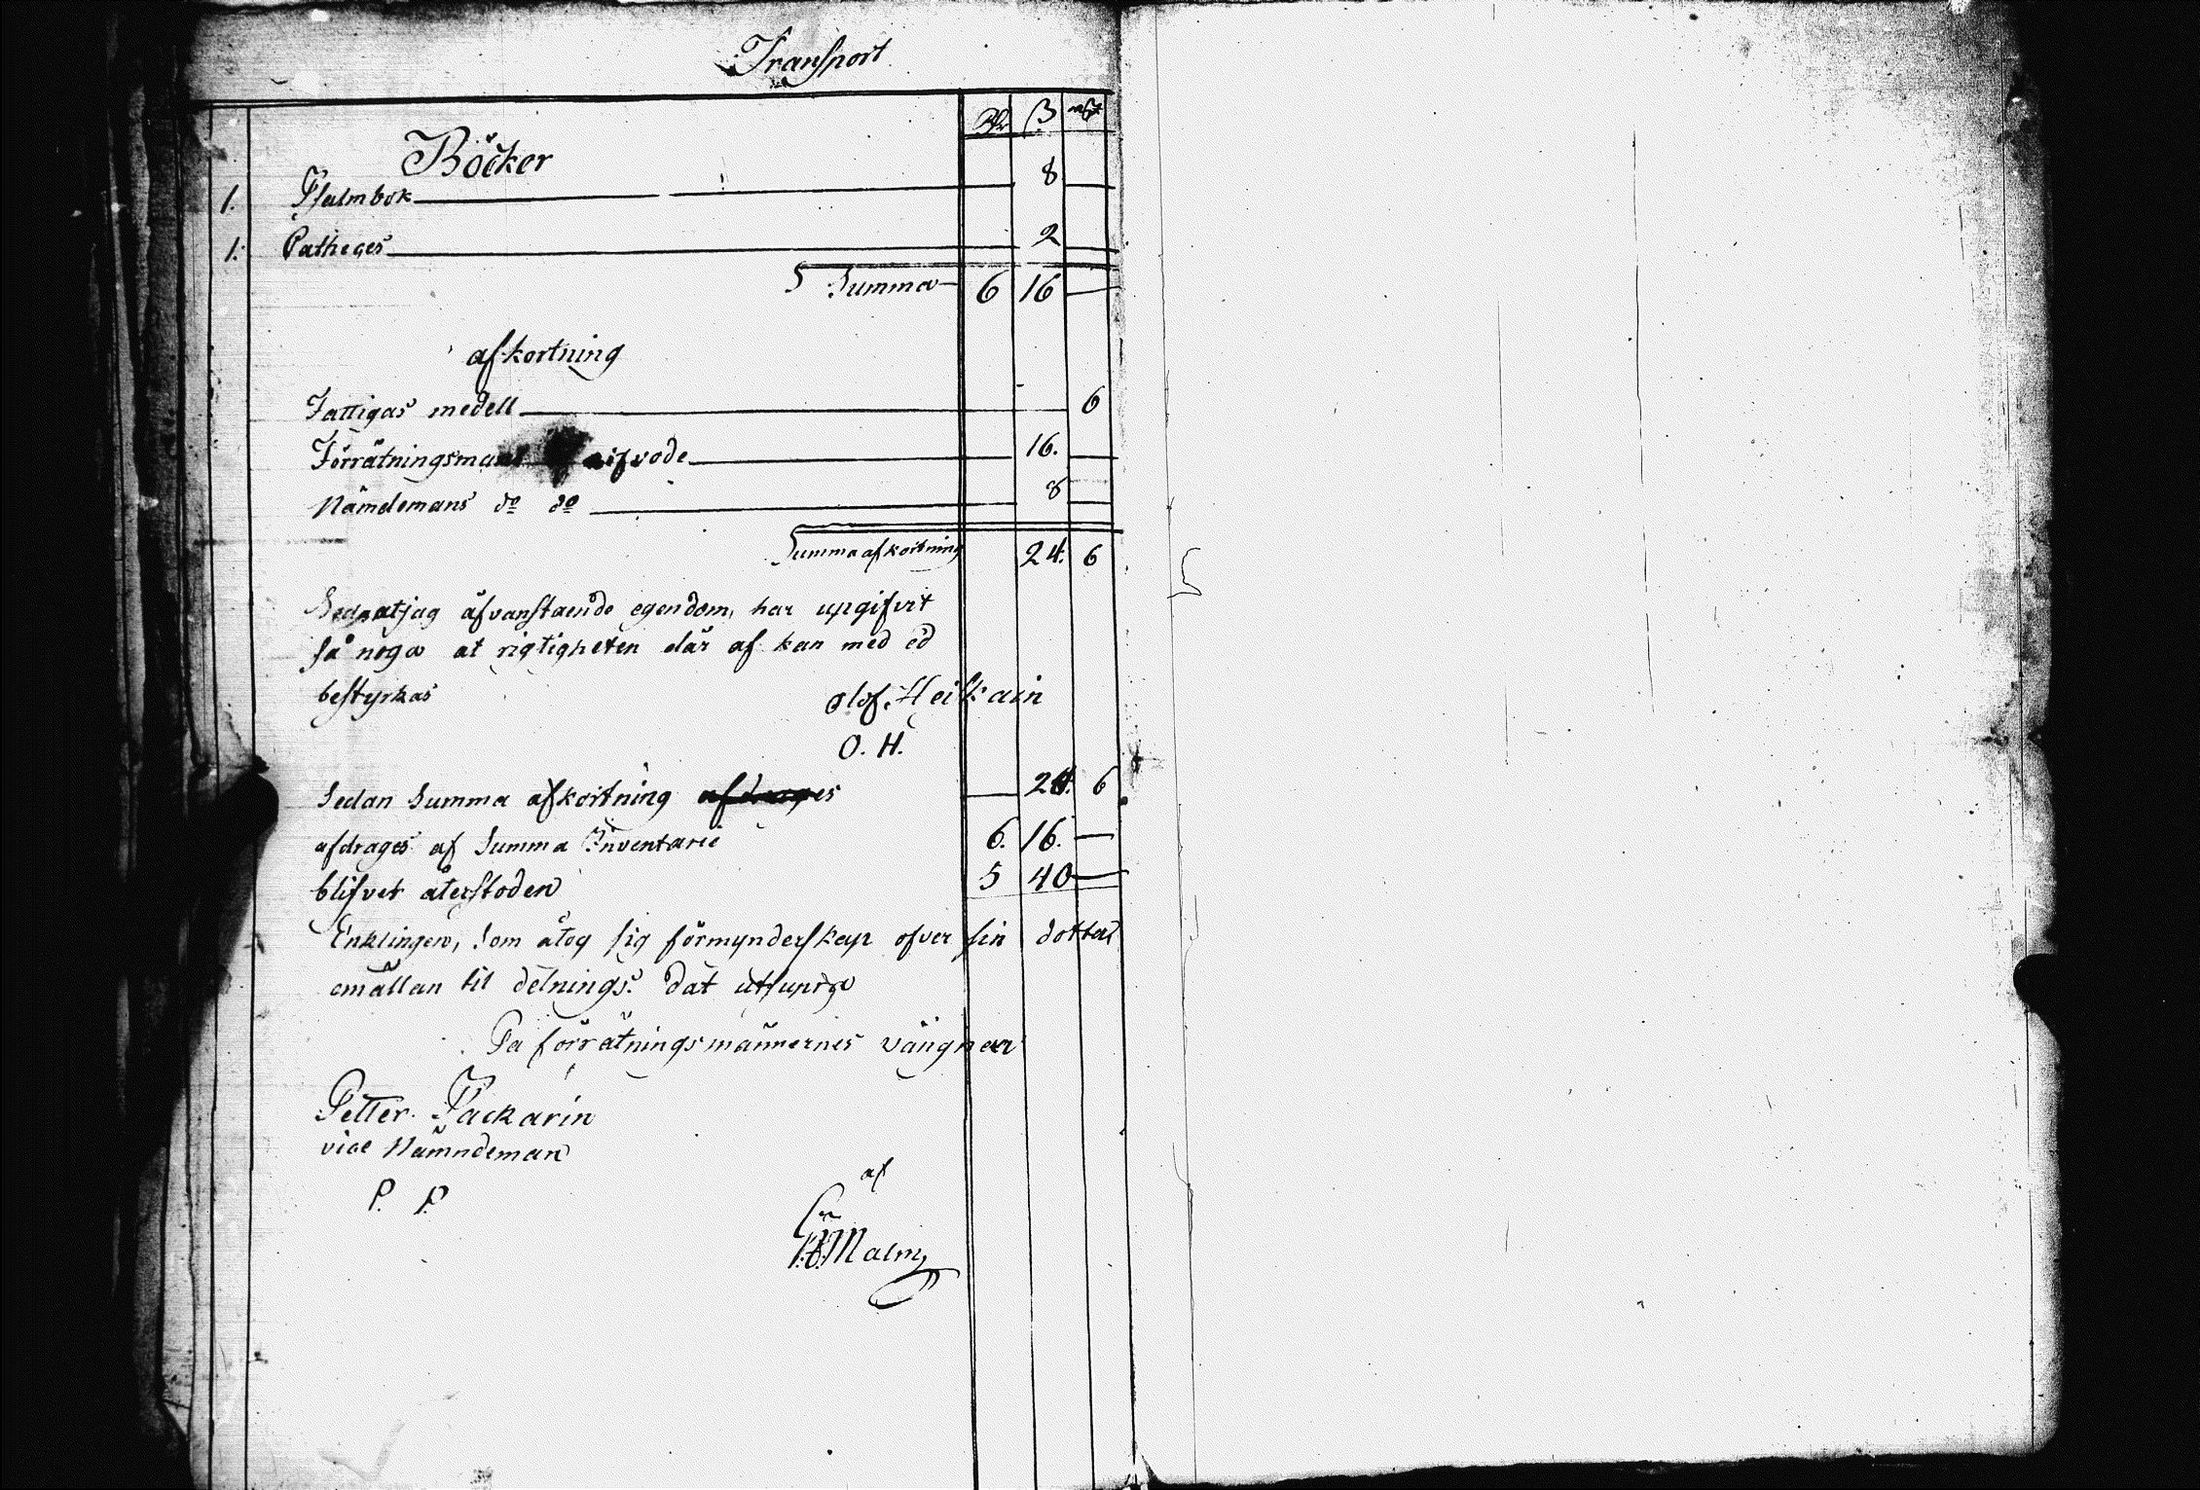 Transport
Rd ß rst
Böcker
1. Psalmbok 8
1. Catheges 2
Summa 6 16 —
afkortning
Fattigas medell 6
Förrätningsmans arfvode 16.
Nämdemans do do 8
Summa afkortning 24. 6
åfvanstaende egendom, har upgifvit
så noga at rigtigheten där af kan med ed
bestyrkas Olof. Heikain
O. H.
Sedan Summa afkortning afdrages — 24. 6
afdrages af Summa Inventarie 6. 16. —
blifvet återstoden 5 40 —
Enklingen, som åtog sig förmynderskap ofver sin dotter
emällan til delnings. Dat ut supra
Pa förrätningsmännernes vängnar
Petter. Packarin
vice Nämndeman
P. P.
af
Malm